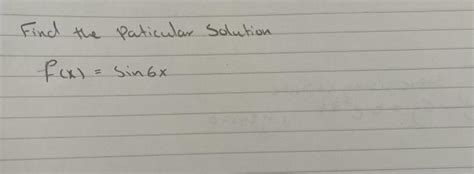 Find the Paticular Solution
f(x) = Sin6x